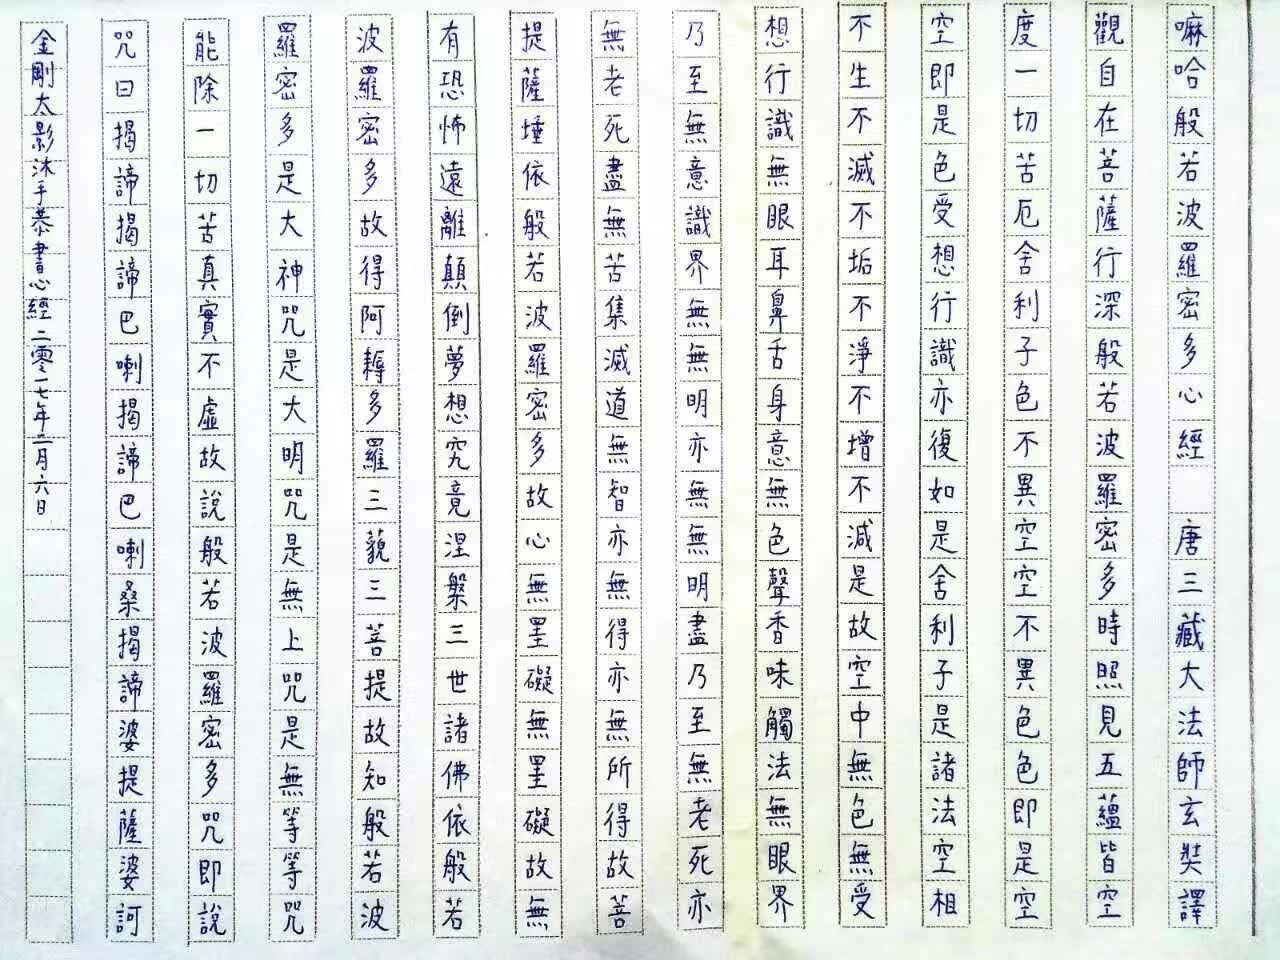 嘛哈般若波羅密多心經 唐三藏大法師玄奘譯
觀自在菩薩行深般若波羅密多時照見五蘊皆空
度一切苦厄舍利子色不異空空不異色色即是空
空即是色受想行識亦復如是舍利子是諸法空相
不生不滅不垢不淨不增不減是故空中無色無受
想行識無眼耳鼻舌身意無色聲香味觸法無眼界
乃至無意識界無無明亦無無明盡乃至無老死亦
無老死盡無苦集滅道無智亦無得亦無所得故菩
提薩埵依般若波羅密多故心無罣礙無罣礙故無
有恐怖遠離顛倒夢想究竟涅槃三世諸佛依般若
波羅密多故得阿耨多羅三藐三菩提故知般若波
羅密多是大神咒是大明咒是無上咒是無等等咒
能除一切苦真實不虛故說般若波羅密多咒即說
咒曰揭諦揭諦巴喇揭諦巴喇桑揭諦婆提薩婆訶
金剛太影沐手恭書心經二零一七年二月六日